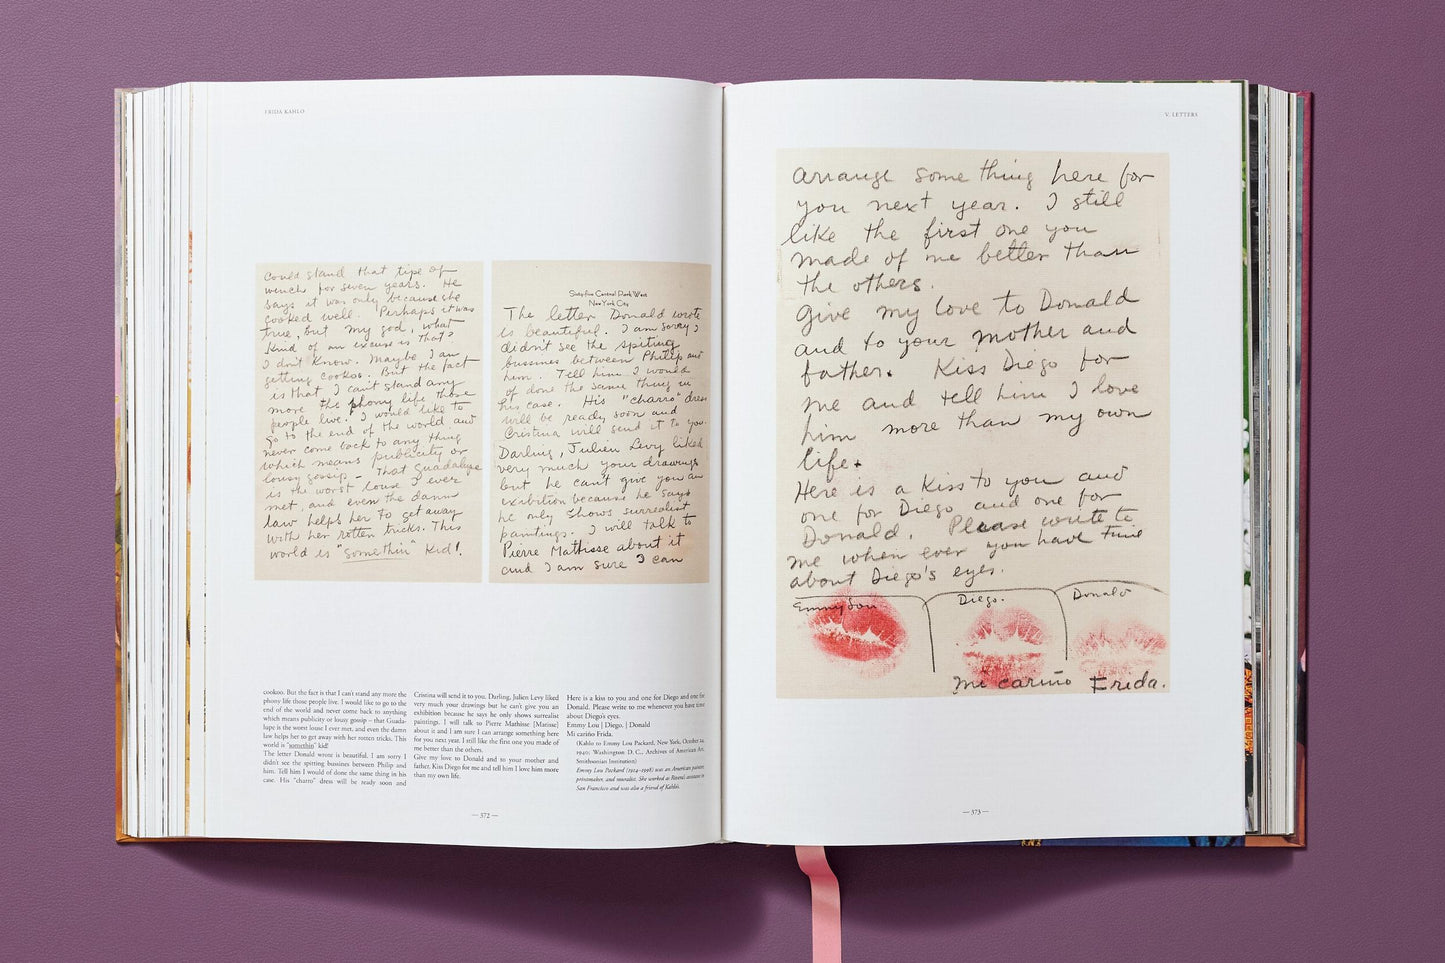 FRIDA KAHLO
could stand that tipe of
wench for seven years. He
says it was only because she
cooked well. Perhaps it was
true, but my god, what
kind of an excuse is that?
I don't know. Maybe I am
getting cookoo. But the fact
is that I can't stand any
more the phony life those
people live. I would like to
go to the end of the world and
never come back to any thing
which means publicity or
lousy gossip – That Guadalupe
is the worst louse I ever
met, and even the damn
law helps her to get away
with her rotten tricks. This
world is "somethin" kid!
Sixty-five Central Park West
New York City
The letter Donald wrote
is beautiful. I am sorry I
didn't see the spiting
bussines between Philip and
him. Tell him I would
of done the same thing in
his case. His "charro" dress
will be ready soon and
Cristina will send it to you.
Darling, Julien Levy liked
very much your drawings
but he can't give you an
exibition because he says
he only shows surrealist
paintings. I will talk to
Pierre Mathisse about it
and I am sure I can
cookoo. But the fact is that I can't stand any more the
phony life those people live. I would like to go to the
end of the world and never come back to anything
which means publicity or lousy gossip – that Guada-
lupe is the worst louse I ever met, and even the damn
law helps her to get away with her rotten tricks. This
world is "somethin" kid!
The letter Donald wrote is beautiful. I am sorry I
didn't see the spiting bussines between Philip and
him. Tell him I would of done the same thing in his
case. His "charro" dress will be ready soon and
Cristina will send it to you. Darling, Julien Levy liked
very much your drawings but he can't give you an
exhibition because he says he only shows surrealist
paintings. I will talk to Pierre Mathisse [Matisse]
about it and I am sure I can arrange something here
for you next year. I still like the first one you made of
me better than the others.
Give my love to Donald and to your mother and
father. Kiss Diego for me and tell him I love him more
than my own life.
Here is a kiss to you and one for Diego and one for
Donald. Please write to me whenever you have time
about Diego's eyes.
Emmy Lou | Diego. | Donald
Mi cariño Frida.
(Kahlo to Emmy Lou Packard, New York, October 24,
1940; Washington D. C., Archives of American Art,
Smithsonian Institution)
Emmy Lou Packard (1914–1998) was an American painter,
printmaker, and muralist. She worked as Rivera's assistant in
San Francisco and was also a friend of Kahlo's.
— 372 —
V. LETTERS
arrange something here for
you next year. I still
like the first one you
made of me better than
the others.
Give my love to Donald
and to your mother and
father. Kiss Diego for
me and tell him I love
him more than my own
life.
Here is a kiss to you and
one for Diego and one for
Donald. Please write to
me when ever you have time
about Diego's eyes.
Emmy Lou
Diego.
Donald
Mi cariño Frida.
— 373 —